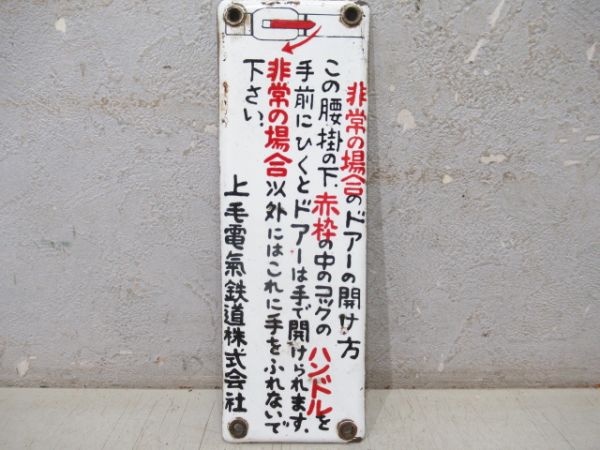 非常の場合のドアーの開け方
この腰掛の下、赤枠の中のコックのハンドルを
手前にひくとドアーは手で開けられます。
非常の場合以外にはこれに手をふれないで
下さい。
上毛電氣鉄道株式会社